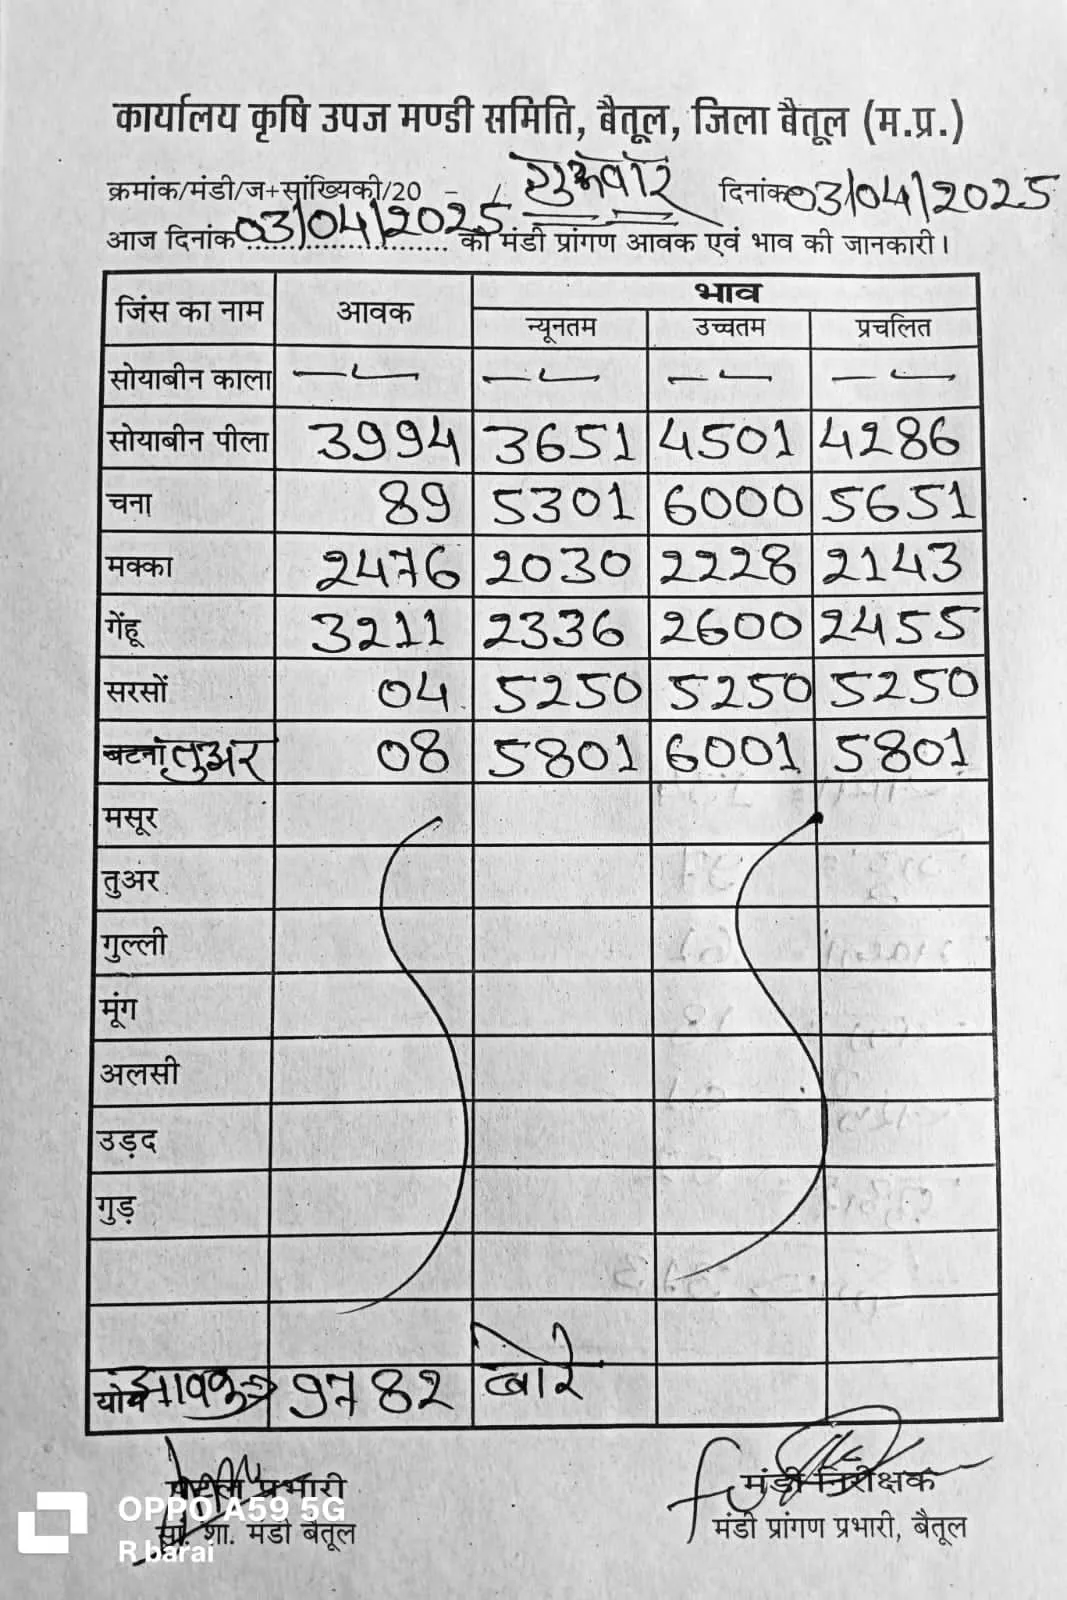 कार्यालय कृषि उपज मण्डी समिति, बैतूल, जिला बैतूल (म.प्र.)
क्रमांक/मंडी/ज+सांख्यिकी/20 - / शुक्रवार दिनांक 03/04/2025
आज दिनांक 03/04/2025 को मंडी प्रांगण आवक एवं भाव की जानकारी।
जिंस का नाम आवक भाव
न्यूनतम उच्चतम प्रचलित
सोयाबीन काला
सोयाबीन पीला 3994 3651 4501 4286
चना 89 5301 6000 5651
मक्का 2476 2030 2228 2143
गेंहू 3211 2336 2600 2455
सरसों 04 5250 5250 5250
बटना तुअर 08 5801 6001 5801
मसूर
तुअर
गुल्ली
मूंग
अलसी
उड़द
गुड़
योग आवक 9782 बोरे
प्रभारी मंडी निरीक्षक
सां. शा. मंडी बैतूल मंडी प्रांगण प्रभारी, बैतूल
OPPO A59 5G
R barai